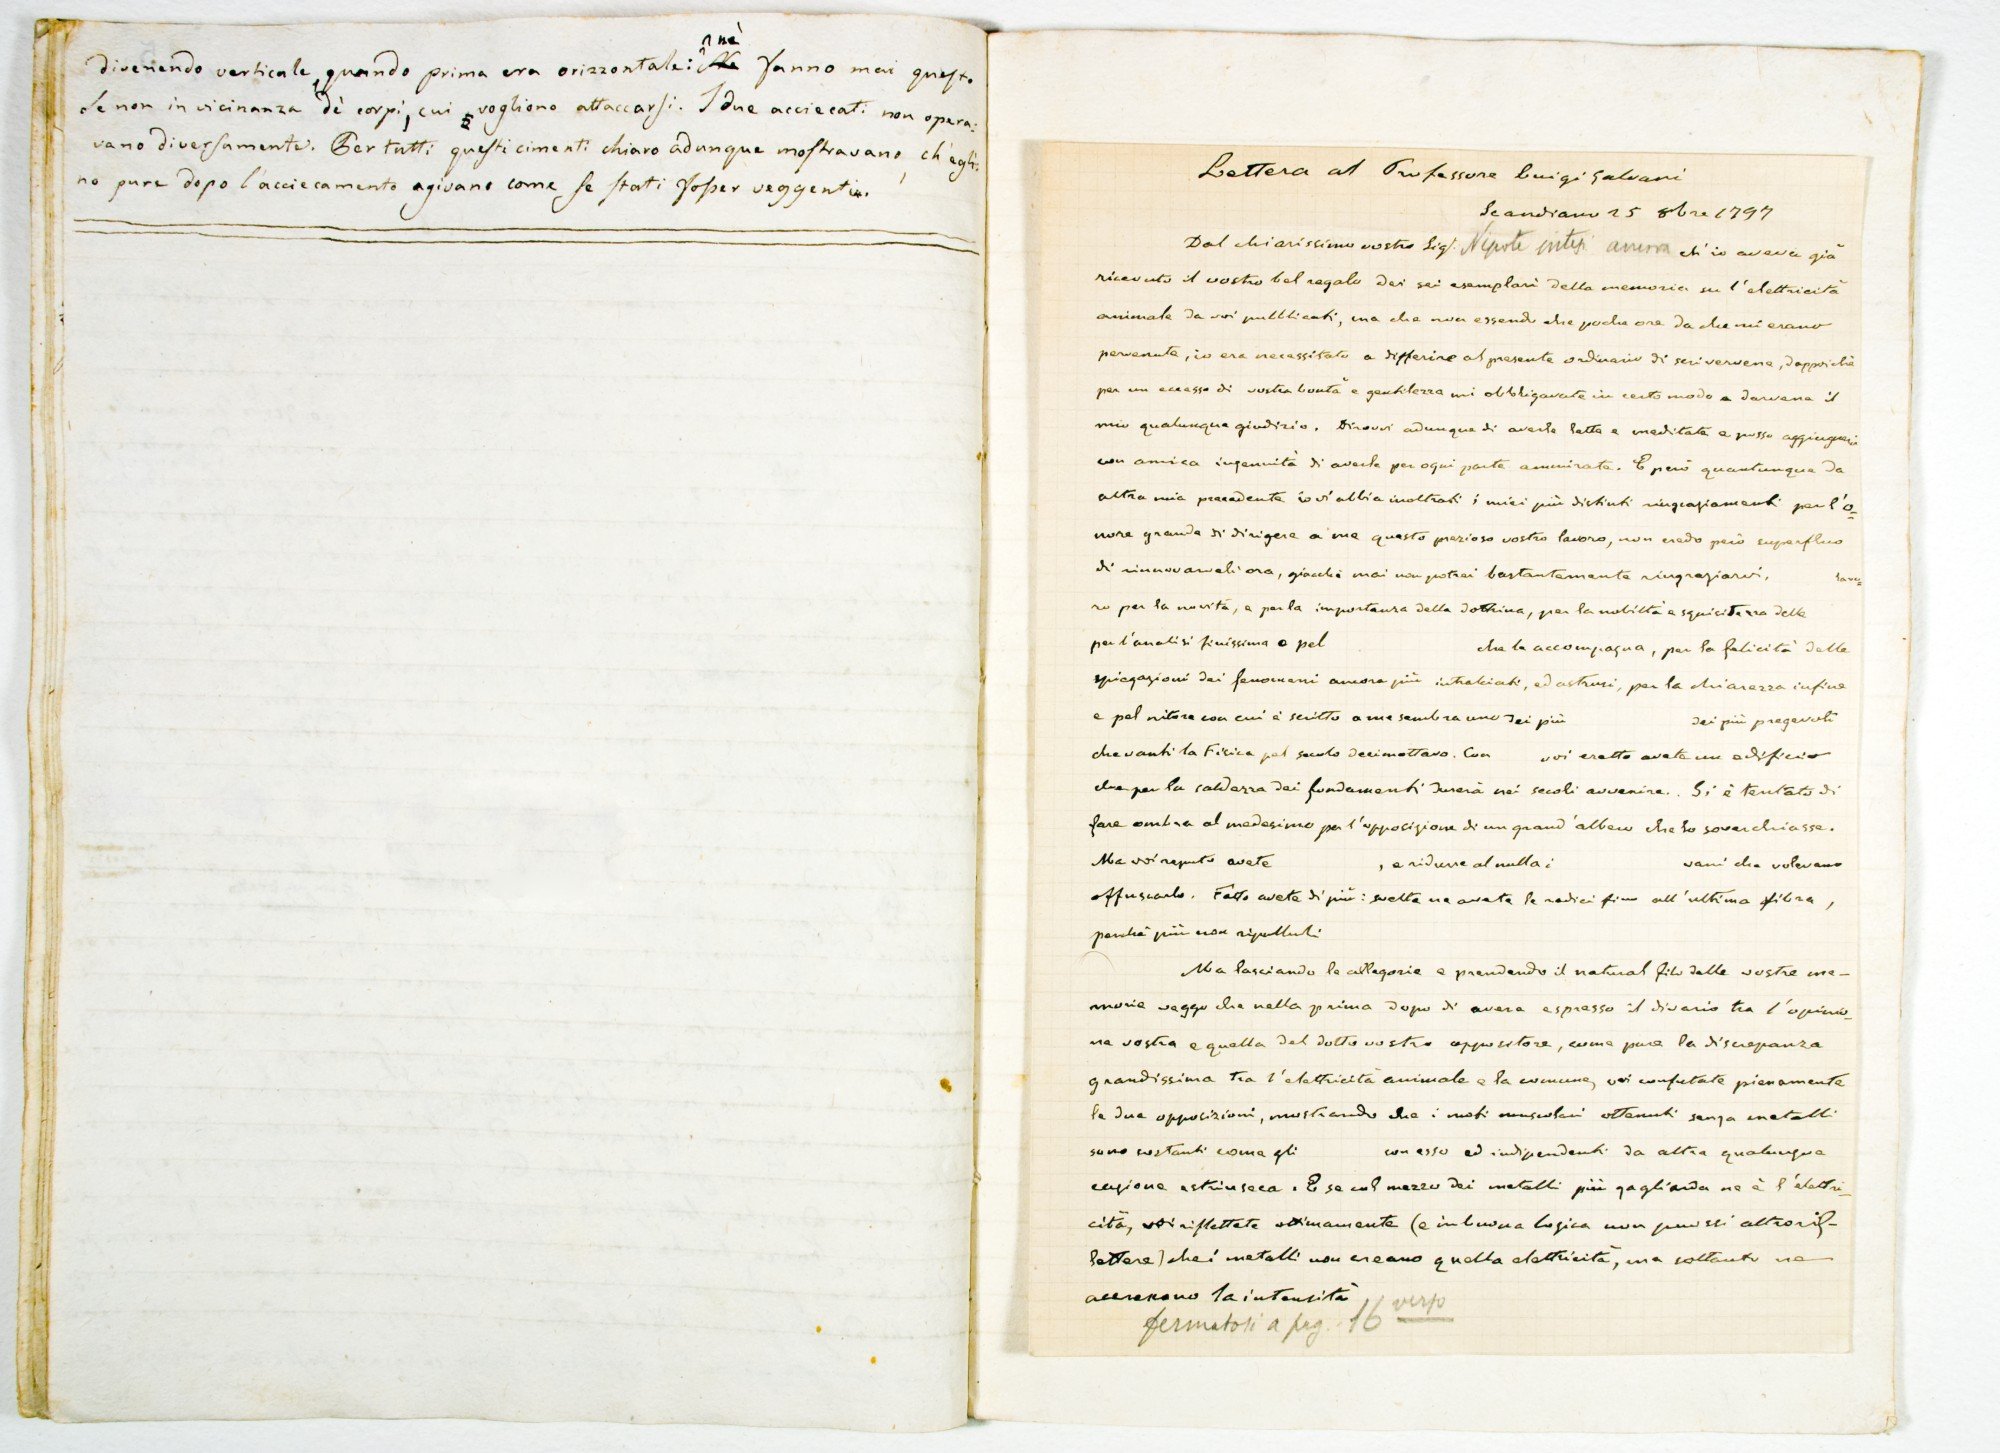 divenendo verticale, quando prima era orizzontale: nè fanno mai questo
se non in vicinanza de' corpi, cui vogliono attaccarsi. I due acciecati non opera-
vano diversamente. Per tutti questi cimenti chiaro adunque mostravano, ch'egli-
no pure dopo l'acciecamento agivano come se stati fosser veggenti.
Lettera al Professore Luigi Galvani
Scandiano 25 8bre 1797
Dal chiarissimo vostro Sig.r Nipote intesi ancora ch'io aveva già
ricevuto il vostro bel regalo dei sei esemplari della memoria su l'elettricità
animale da voi pubblicati, ma che non essendo che poche ore da che mi erano
pervenute, io era necessitato a differire al presente ordinario di scrivervene, dappoichè
per un eccesso di vostra bontà e gentilezza mi obbligavate in certo modo a darvene il
mio qualunque giudizio. Dirovvi adunque di averle lette e meditate e posso aggiugnervi
con amica ingenuità di averle per ogni parte ammirate. E però quantunque da
altra mia precedente io vi abbia inoltrati i miei più distinti ringraziamenti per l'o=
nore grande di dirigere a me questo prezioso vostro lavoro, non credo però superfluo
di rinnovarveli ora, giacchè mai non potrei bastantemente ringraziarvi. Lavo=
ro per la novità, e per la importanza della dottrina, per la nobiltà e squisitezza delle
per l'analisi finissima e pel che la accompagna, per la felicità delle
spiegazioni dei fenomeni ancora più intralciati, ed astrusi, per la chiarezza infine
e pel nitore con cui è scritto a me sembra uno dei più dei più pregevoli
che vanti la Fisica pel secolo decimottavo. Con voi eretto avete un edificio
che per la saldezza dei fondamenti durerà nei secoli avvenire. Si è tentato di
fare ombra al medesimo per l'opposizione di un grand'albero che lo soverchiasse.
Ma voi saputo avete , e ridurre al nulla i vani che volevano
offuscarlo. Fatto avete di più: svelte ne avete le radici fino all'ultima fibra,
perchè più non ripulluli
Ma lasciando le allegorie e prendendo il natural filo delle vostre me-
morie veggo che nella prima dopo di avere espresso il divario tra l'opinio-
ne vostra e quella del dotto vostro oppositore, come pure la discrepanza
grandissima tra l'elettricità animale e la comune, voi confutate pienamente
le due opposizioni, mostrando che i moti muscolari ottenuti senza metalli
sono costanti come gli con esso ed indipendenti da altra qualunque
cagione estrinseca. E se col mezzo dei metalli più gagliarda ne è l'elettri-
cità, voi riflettete ottimamente (e in buona logica non puossi altro rif-
lettere) che i metalli non creano quella elettricità, ma soltanto ne
accrescono la intensità
fermatosi a pag. 16 verso